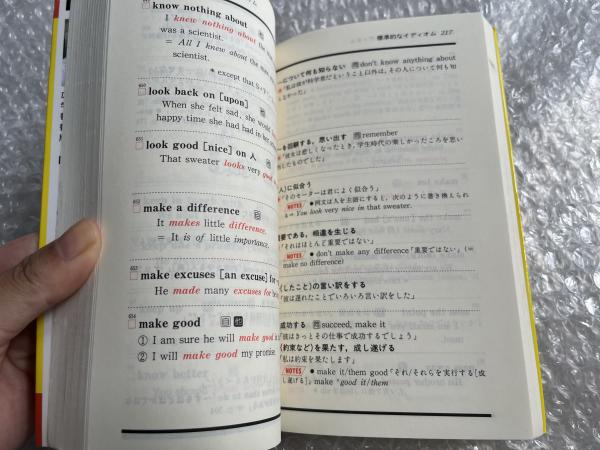 know nothing about
I knew nothing about the
was a scientist.
= All I knew about the
scientist.
except that S+
look back on [upon]
When she felt sad, she would
happy time she had had in
651
look good [nice] on 人
That sweater looks very good
make a difference
It makes little difference.
= It is of little importance.
653
make excuses [an excuse] for
He made many excuses for
654
make good 自 他
① I am sure he will make good
② I will make good my promise.
標準的なイディオム 217
～について何も知らない 同 don't know anything about
「私は彼が科学者だということ以外は、その人について何も知
を回顧する，思い出す 同 remember
「彼女は悲しくなったとき，学生時代の楽しかったころを思い
(人)に似合う
「そのセーターは君によく似合う」
NOTES ●例文は人を主語にすると，次のように書き換えられ
= You look very nice in that sweater.
である，相違を生じる
「それはほとんど重要ではない」
NOTES ● don't make any difference「重要ではない」(=
make no difference)
(したこと)の言い訳をする
「彼は遅れたことでいろいろ言い訳をした」
成功する 同 succeed, make it
「彼はきっとその仕事で成功するでしょう」
(約束など)を果たす，成し遂げる
「私は約束を果たします」
NOTES ● make it/them good「それ/それらを実行する[成
し遂げる]」make *good it/them